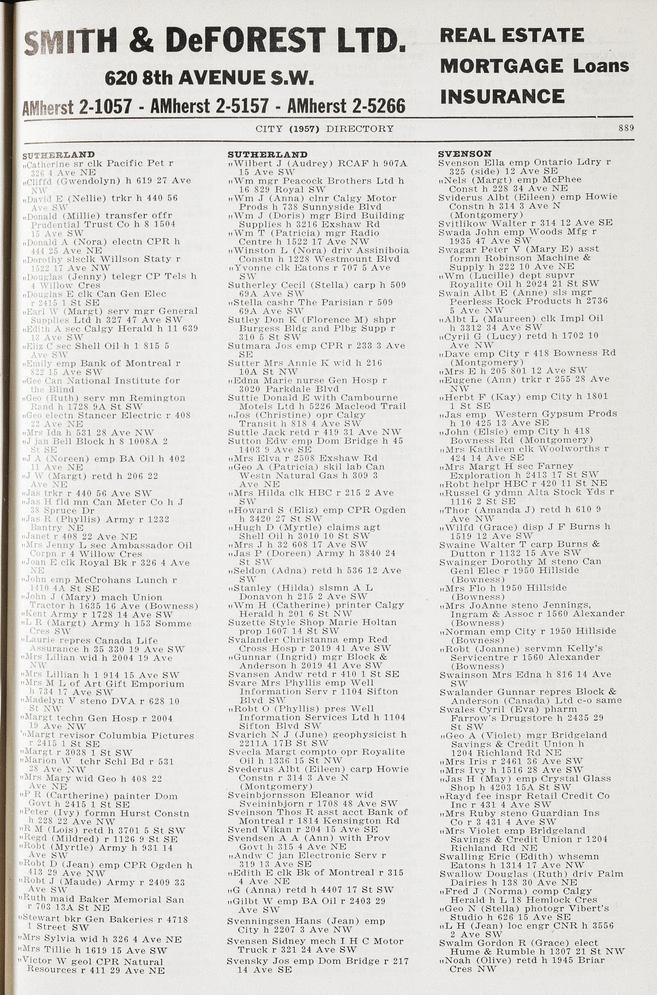 SMITH & DeFOREST LTD.
620 8th AVENUE S.W.
AMherst 2-1057 - AMherst 2-5157 - AMherst 2-5266
REAL ESTATE
MORTGAGE Loans
INSURANCE
CITY (1957) DIRECTORY 889
SUTHERLAND
„Catherine sr clk Pacific Pet r
326 4 Ave NE
„Cliffd (Gwendolyn) h 619 27 Ave
NW
„David E (Nellie) trkr h 440 56
Ave SW
„Donald (Millie) transfer offr
Prudential Trust Co h 8 1504
15 Ave SW
„Donald A (Nora) electn CPR h
444 25 Ave NE
„Dorothy slsclk Willson Staty r
1522 17 Ave NW
„Douglas (Jenny) telegr CP Tels h
4 Willow Cres
„Douglas E clk Can Gen Elec
r 2415 1 St SE
„Earl W (Margt) serv mgr General
Supplies Ltd h 327 47 Ave SW
„Edith A sec Calgary Herald h 11 639
13 Ave SW
„Eliz C sec Shell Oil h 1 815 5
Ave SW
„Emily emp Bank of Montreal r
822 15 Ave SW
„Gee Can National Institute for
the Blind
„Geo (Ruth) serv mn Remington
Rand h 1728 9A St SW
„Geo electn Stancer Electric r 408
22 Ave NE
„Mrs Ida h 531 28 Ave NW
„J jan Bell Block h 8 1008A 2
St SE
„J A (Noreen) emp BA Oil h 402
11 Ave NE
„J W (Margt) retd h 206 22
Ave NE
„Jas trkr r 440 56 Ave SW
„Jas H fld mn Can Meter Co h J
38 Spruce Dr
„Jas R (Phyllis) Army r 1232
Bantry NE
„Janet r 408 22 Ave NE
„Mrs Jenny L sec Ambassador Oil
Corpn r 4 Willow Cres
„Joan E clk Royal Bk r 326 4 Ave
NE
„John emp McCrohans Lunch r
1410 4A St SE
„John J (Mary) mach Union
Tractor h 1635 16 Ave (Bowness)
„Kent Army r 1728 14 Ave SW
„L R (Margt) Army h 153 Somme
Cres SW
„Laurie repres Canada Life
Assurance h 35 330 19 Ave SW
„Mrs Lilian wid h 2004 19 Ave
NW
„Mrs Lillian h 1 914 15 Ave SW
„Mrs M L of Art Gift Emporium
h 734 17 Ave SW
„Madelyn V steno DVA r 628 10
St NW
„Margt techn Gen Hosp r 2004
19 Ave NW
„Margt revisor Columbia Pictures
r 2415 1 St SE
„Margt r 3038 1 St SW
„Marion W tchr Schl Bd r 531
28 Ave NW
„Mrs Mary wid Geo h 408 22
Ave NE
„P R (Cartherine) painter Dom
Govt h 2415 1 St SE
„Peter (Ivy) formn Hurst Constn
h 228 22 Ave NW
„R M (Lois) retd h 3701 5 St SW
„Regd (Mildred) r 1126 9 St SE
„Robt (Myrtle) Army h 931 14
Ave SW
„Robt D (Jean) emp CPR Ogden h
413 29 Ave NW
„Robt J (Maude) Army r 2409 33
Ave SW
„Ruth maid Baker Memorial San
r 703 13A St NE
„Stewart bkr Gen Bakeries r 4718
1 Street SW
„Mrs Sylvia wid h 326 4 Ave NE
„Mrs Tillie h 1619 15 Ave SW
„Victor W geol CPR Natural
Resources r 411 29 Ave NE
SUTHERLAND
„Wilbert J (Audrey) RCAF h 907A
15 Ave SW
„Wm mgr Peacock Brothers Ltd h
16 829 Royal SW
„Wm J (Anna) clnr Calgary Motor
Prods h 738 Sunnyside Blvd
„Wm J (Doris) mgr Bird Building
Supplies h 3216 Exshaw Rd
„Wm T (Patricia) mgr Radio
Centre h 1522 17 Ave NW
„Winston L (Nora) driv Assiniboia
Constn h 1228 Westmount Blvd
„Yvonne clk Eatons r 707 5 Ave
SW
Sutherley Cecil (Stella) carp h 509
69A Ave SW
„Stella cashr The Parisian r 509
69A Ave SW
Sutley Don K (Florence M) shpr
Burgess Bldg and Plbg Supp r
310 5 St SW
Sutmara Jos emp CPR r 233 3 Ave
SE
Sutter Mrs Annie K wid h 216
10A St NW
„Edna Marie nurse Gen Hosp r
3020 Parkdale Blvd
Suttie Donald E with Cambourne
Motels Ltd h 5226 Macleod Trail
„Jos (Christine) opr Calgy
Transit h 818 4 Ave SW
Suttle Jack retd r 419 31 Ave NW
Sutton Edw emp Dom Bridge h 45
1403 9 Ave SE
„Mrs Elva r 2508 Exshaw Rd
„Geo A (Patricia) skil lab Can
Westn Natural Gas h 309 3
Ave NE
„Mrs Hilda clk HBC r 215 2 Ave
SW
„Howard S (Eliz) emp CPR Ogden
h 3420 27 St SW
„Hugh D (Myrtle) claims agt
Shell Oil h 3010 10 St SW
„Mrs J h 32 608 17 Ave SW
„Jas P (Doreen) Army h 3840 24
St SW
„Seldon (Adna) retd h 536 12 Ave
SW
„Stanley (Hilda) slsmn A L
Donavon h 215 2 Ave SW
„Wm H (Catherine) printer Calgy
Herald h 201 6 St NW
Suzette Style Shop Marie Holtan
prop 1607 14 St SW
Svalander Christanna emp Red
Cross Hosp r 2019 41 Ave SW
„Gunnar (Ingrid) mgr Block &
Anderson h 2019 41 Ave SW
Svansen Andw retd r 410 1 St SE
Svare Mrs Phyllis emp Well
Information Serv r 1104 Sifton
Blvd SW
„Robt O (Phyllis) pres Well
Information Services Ltd h 1104
Sifton Blvd SW
Svarich N J (June) geophysicist h
2211A 17B St SW
Svecla Margt compto opr Royalite
Oil h 1336 15 St NW
Svederus Albt (Eileen) carp Howie
Constn r 314 3 Ave N
(Montgomery)
Sveinbjornsson Eleanor wid
Sveininbjorn r 1708 48 Ave SW
Sveinson Thos R asst acct Bank of
Montreal r 1814 Kensington Rd
Svend Vikan r 204 15 Ave SE
Svendsen A A (Ann) with Prov
Govt h 315 4 Ave NE
„Andw C jan Electronic Serv r
319 13 Ave SE
„Edith E clk Bk of Montreal r 315
4 Ave NE
„G (Anna) retd h 4407 17 St SW
„Gilbt W emp BA Oil r 2403 29
Ave SW
Svenningsen Hans (Jean) emp
City h 2207 3 Ave NW
Svensen Sidney mech I H C Motor
Truck r 321 24 Ave SW
Svensky Jos emp Dom Bridge r 217
14 Ave SE
SVENSON
Svenson Ella emp Ontario Ldry r
325 (side) 12 Ave SE
„Nels (Margt) emp McPhee
Const h 228 34 Ave NE
Sviderus Albt (Eileen) emp Howie
Constn h 314 3 Ave N
(Montgomery)
Svitlikow Walter r 314 12 Ave SE
Swada John emp Woods Mfg r
1935 47 Ave SW
Swagar Peter V (Mary E) asst
formn Robinson Machine &
Supply h 222 10 Ave NE
„Wm (Lucille) dept supvr
Royalite Oil h 2024 21 St SW
Swain Albt E (Anne) sls mgr
Peerless Rock Products h 2736
5 Ave NW
„Albt L (Maureen) clk Impl Oil
h 3312 34 Ave SW
„Cyril G (Lucy) retd h 1702 10
Ave NW
„Dave emp City r 418 Bowness Rd
(Montgomery)
„Mrs E h 205 801 12 Ave SW
„Eugene (Ann) trkr r 255 28 Ave
NW
„Herbt F (Kay) emp City h 1801
1 St SE
„Jas emp Western Gypsum Prods
h 10 425 13 Ave SE
„John (Elsie) emp City h 418
Bowness Rd (Montgomery)
„Mrs Kathleen clk Woolworths r
424 14 Ave SE
„Mrs Margt H sec Farney
Exploration h 2413 17 St SW
„Robt helpr HBC r 420 11 St NE
„Russel G ydmn Alta Stock Yds r
1116 2 St SE
„Thor (Amanda J) retd h 610 9
Ave NW
„Wilfd (Grace) disp J F Burns h
1519 12 Ave SW
Swaine Walter T carp Burns &
Dutton r 1132 15 Ave SW
Swainger Dorothy M steno Can
Genl Elec r 1950 Hillside
(Bowness)
„Mrs Flo h 1950 Hillside
(Bowness)
„Mrs JoAnne steno Jennings,
Ingram & Assoc r 1560 Alexander
(Bowness)
„Norman emp City r 1950 Hillside
(Bowness)
„Robt (Joanne) servmn Kelly's
Servicentre r 1560 Alexander
(Bowness)
Swainson Mrs Edna h 816 14 Ave
SW
Swalander Gunnar repres Block &
Anderson (Canada) Ltd c-o same
Swales Cyril (Eva) pharm
Farrow's Drugstore h 2435 29
St SW
„Geo A (Violet) mgr Bridgeland
Savings & Credit Union h
1204 Richland Rd NE
„Mrs Iris r 2461 36 Ave SW
„Mrs Ivy h 1516 28 Ave SW
„Jas H (May) emp Crystal Glass
Shop h 4203 15A St SW
„Rayd fee inspr Retail Credit Co
Inc r 431 4 Ave SW
„Mrs Ruby steno Guardian Ins
Co r 3 431 4 Ave SW
„Mrs Violet emp Bridgeland
Savings & Credit Union r 1204
Richland Rd NE
Swalling Eric (Edith) whsemn
Eatons h 1314 17 Ave NW
Swallow Douglas (Ruth) driv Palm
Dairies h 138 30 Ave NE
„Fred J (Norma) comp Calgy
Herald h L 18 Hemlock Cres
„Geo N (Stella) photogr Vibert's
Studio h 626 15 Ave SE
„L H (Jean) loc engr CNR h 3556
2 Ave SW
Swalm Gordon R (Grace) elect
Hume & Rumble h 1307 21 St NW
„Noah (Olive) retd h 1945 Briar
Cres NW